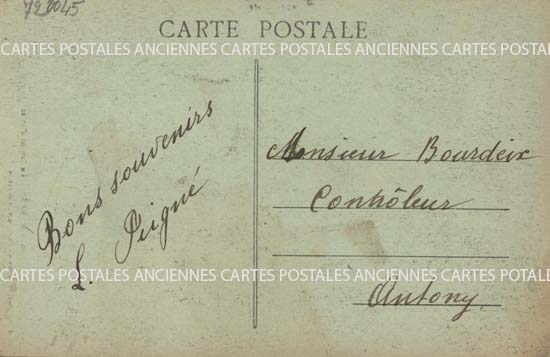 723045
CARTE POSTALE
CARTES POSTALES ANCIENNES CARTES POSTALES ANCIENNES CARTES POSTALES
Bons souvenirs
L. Peigné
Monsieur Bourdeix
Contrôleur
Antony
CARTES POSTALES ANCIENNES CARTES POSTALES ANCIENNES CARTES POTALES